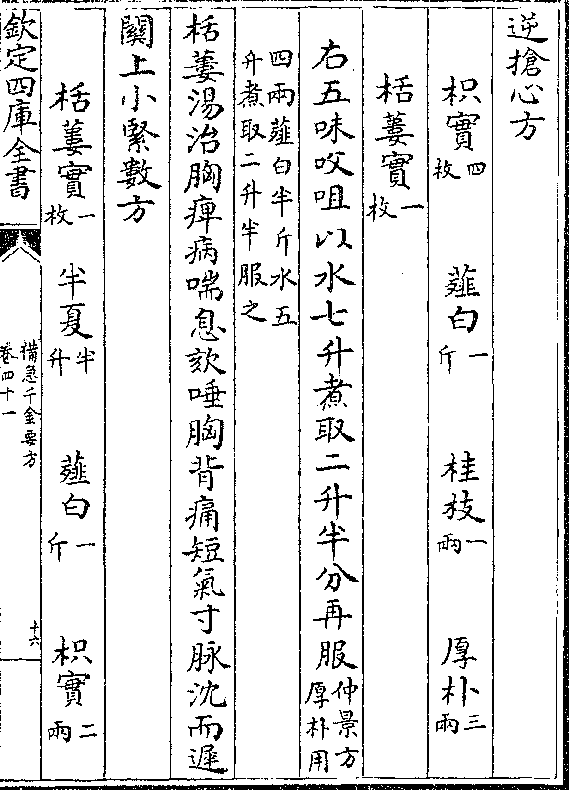 逆搶心方
枳實四枚 薤白一斤 桂枝一兩 厚朴三兩
栝蔞實一枚
右五味㕮咀以水七升煮取二升半分再服仲景方厚朴用
四兩薤白半斤水五升煮取二升半服之
栝蔞湯治胸痺病喘息欬唾胸背痛短氣寸脉沈而遲
關上小緊數方
栝蔞實一枚 半夏半升 薤白一斤 枳實二兩
欽定四庫全書
備急千金要方
卷四十一
十六